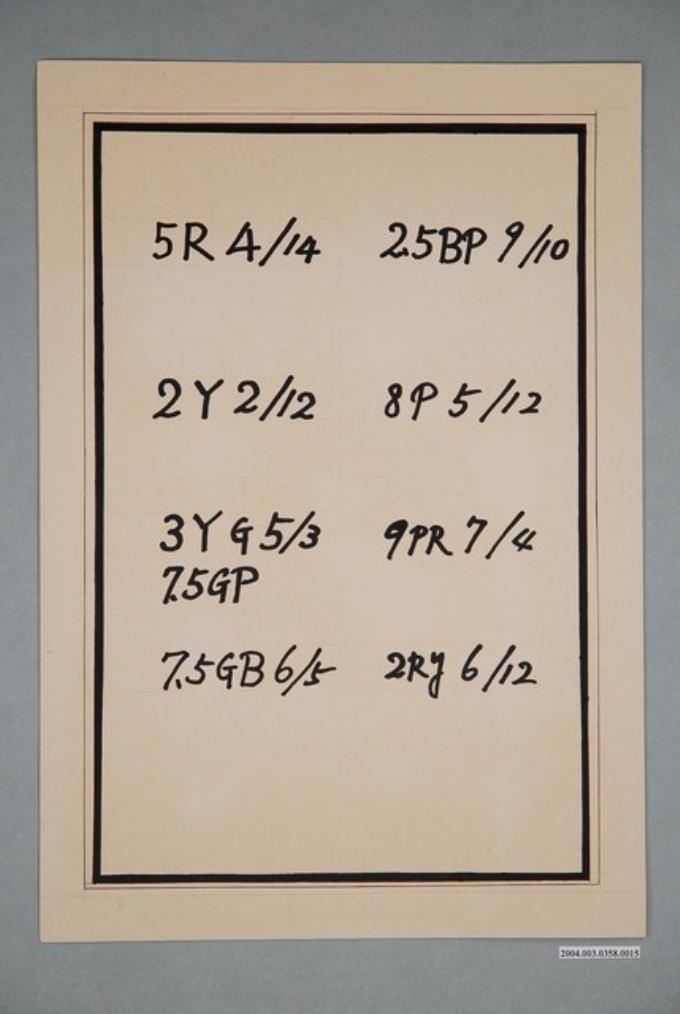 5R 4/14
2.5BP 9/10
2Y 2/12
8P 5/12
3YG 5/3
9PR 7/4
7.5GP
7.5GB 6/5
2Ry 6/12
2004.003.0358.0015